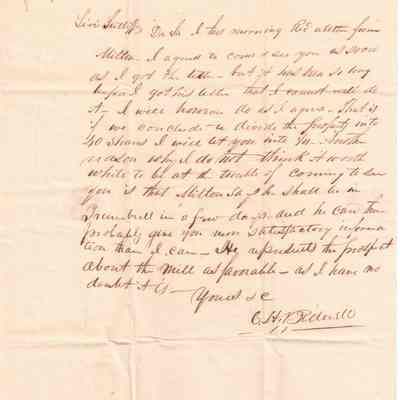 Levi Sutliff Dr Sir I this morning Recd a letter from
Milton I agreed to come & see you as soon
as I got the letter - but it has been so long
before I got his letter that I cannot well do
it - I will however do as I agree - That is
if we conclude to divide the property into
40 shares I will let you into in. Another
reason why I do not think it worth
while to be at the trouble of coming to see
you is that Milton says he shall be in
Trumbull in a few days and he can then
probably give you more satisfactory informa
tion than I can - He represents the prospect
about the Mill as favorable - as I have no
doubt it is -
Yours &c
C. H.